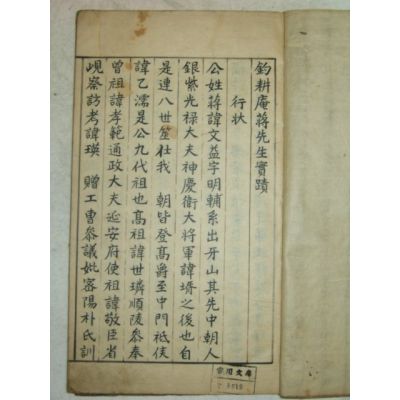 釣耕庵蔣先生實蹟
行狀
公姓蔣諱文益字明輔系出牙山其先中朝人
銀紫光禄大夫神慶衛大將軍諱壻之後也自
是連八世筮仕我 朝皆登高爵至中門祗侯
諱乙濡是公九代祖也高祖諱世璘順陵叅奉
曾祖諱孝範通政大夫延安府使祖諱敬臣省
峴察訪考諱瑛 贈工曹叅議妣密陽朴氏訓